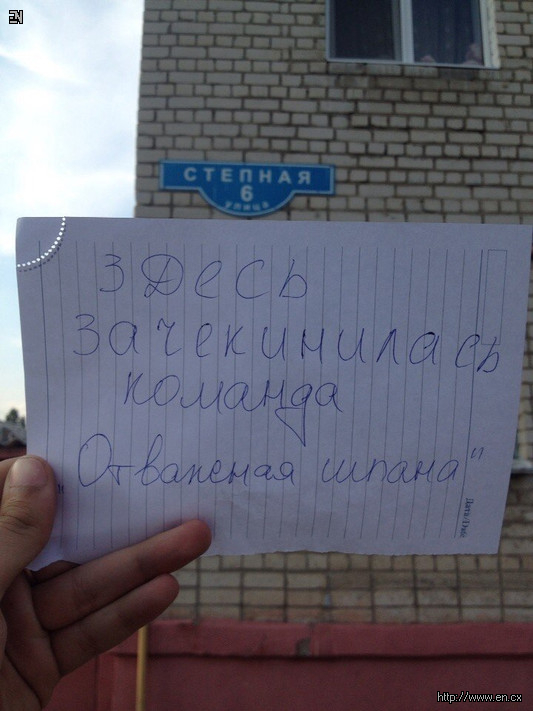 EN
СТЕПНАЯ
6
улица
Здесь
зачекинилась
команда
"Отважная шпана"
Дата/Date
http://www.en.cx